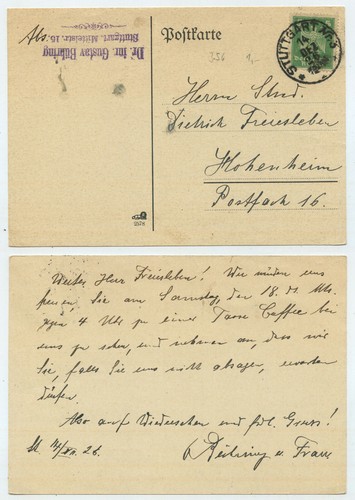 Abs.
Dr. jur. Gustav Bühring
Stuttgart, Mittelstr. 16
Postkarte
STUTTGART No.3
350
1,-
Herrn Stud.
Dietrich Freiesleben
Hohenheim
Postfach 16.
2578
Werter Herr Freiesleben! Wir würden uns
freuen, Sie am Samstag, den 18. ds. Mts.
gegen 4 Uhr zu einer Tasse Caffee bei
uns zu sehen, und nehmen an, dass wir
Sie, falls Sie uns nicht absagen, erwarten
dürfen.
Also auf Wiedersehen und frdl. Gruss!
St. 14/XII. 26.
Bühring u. Frau